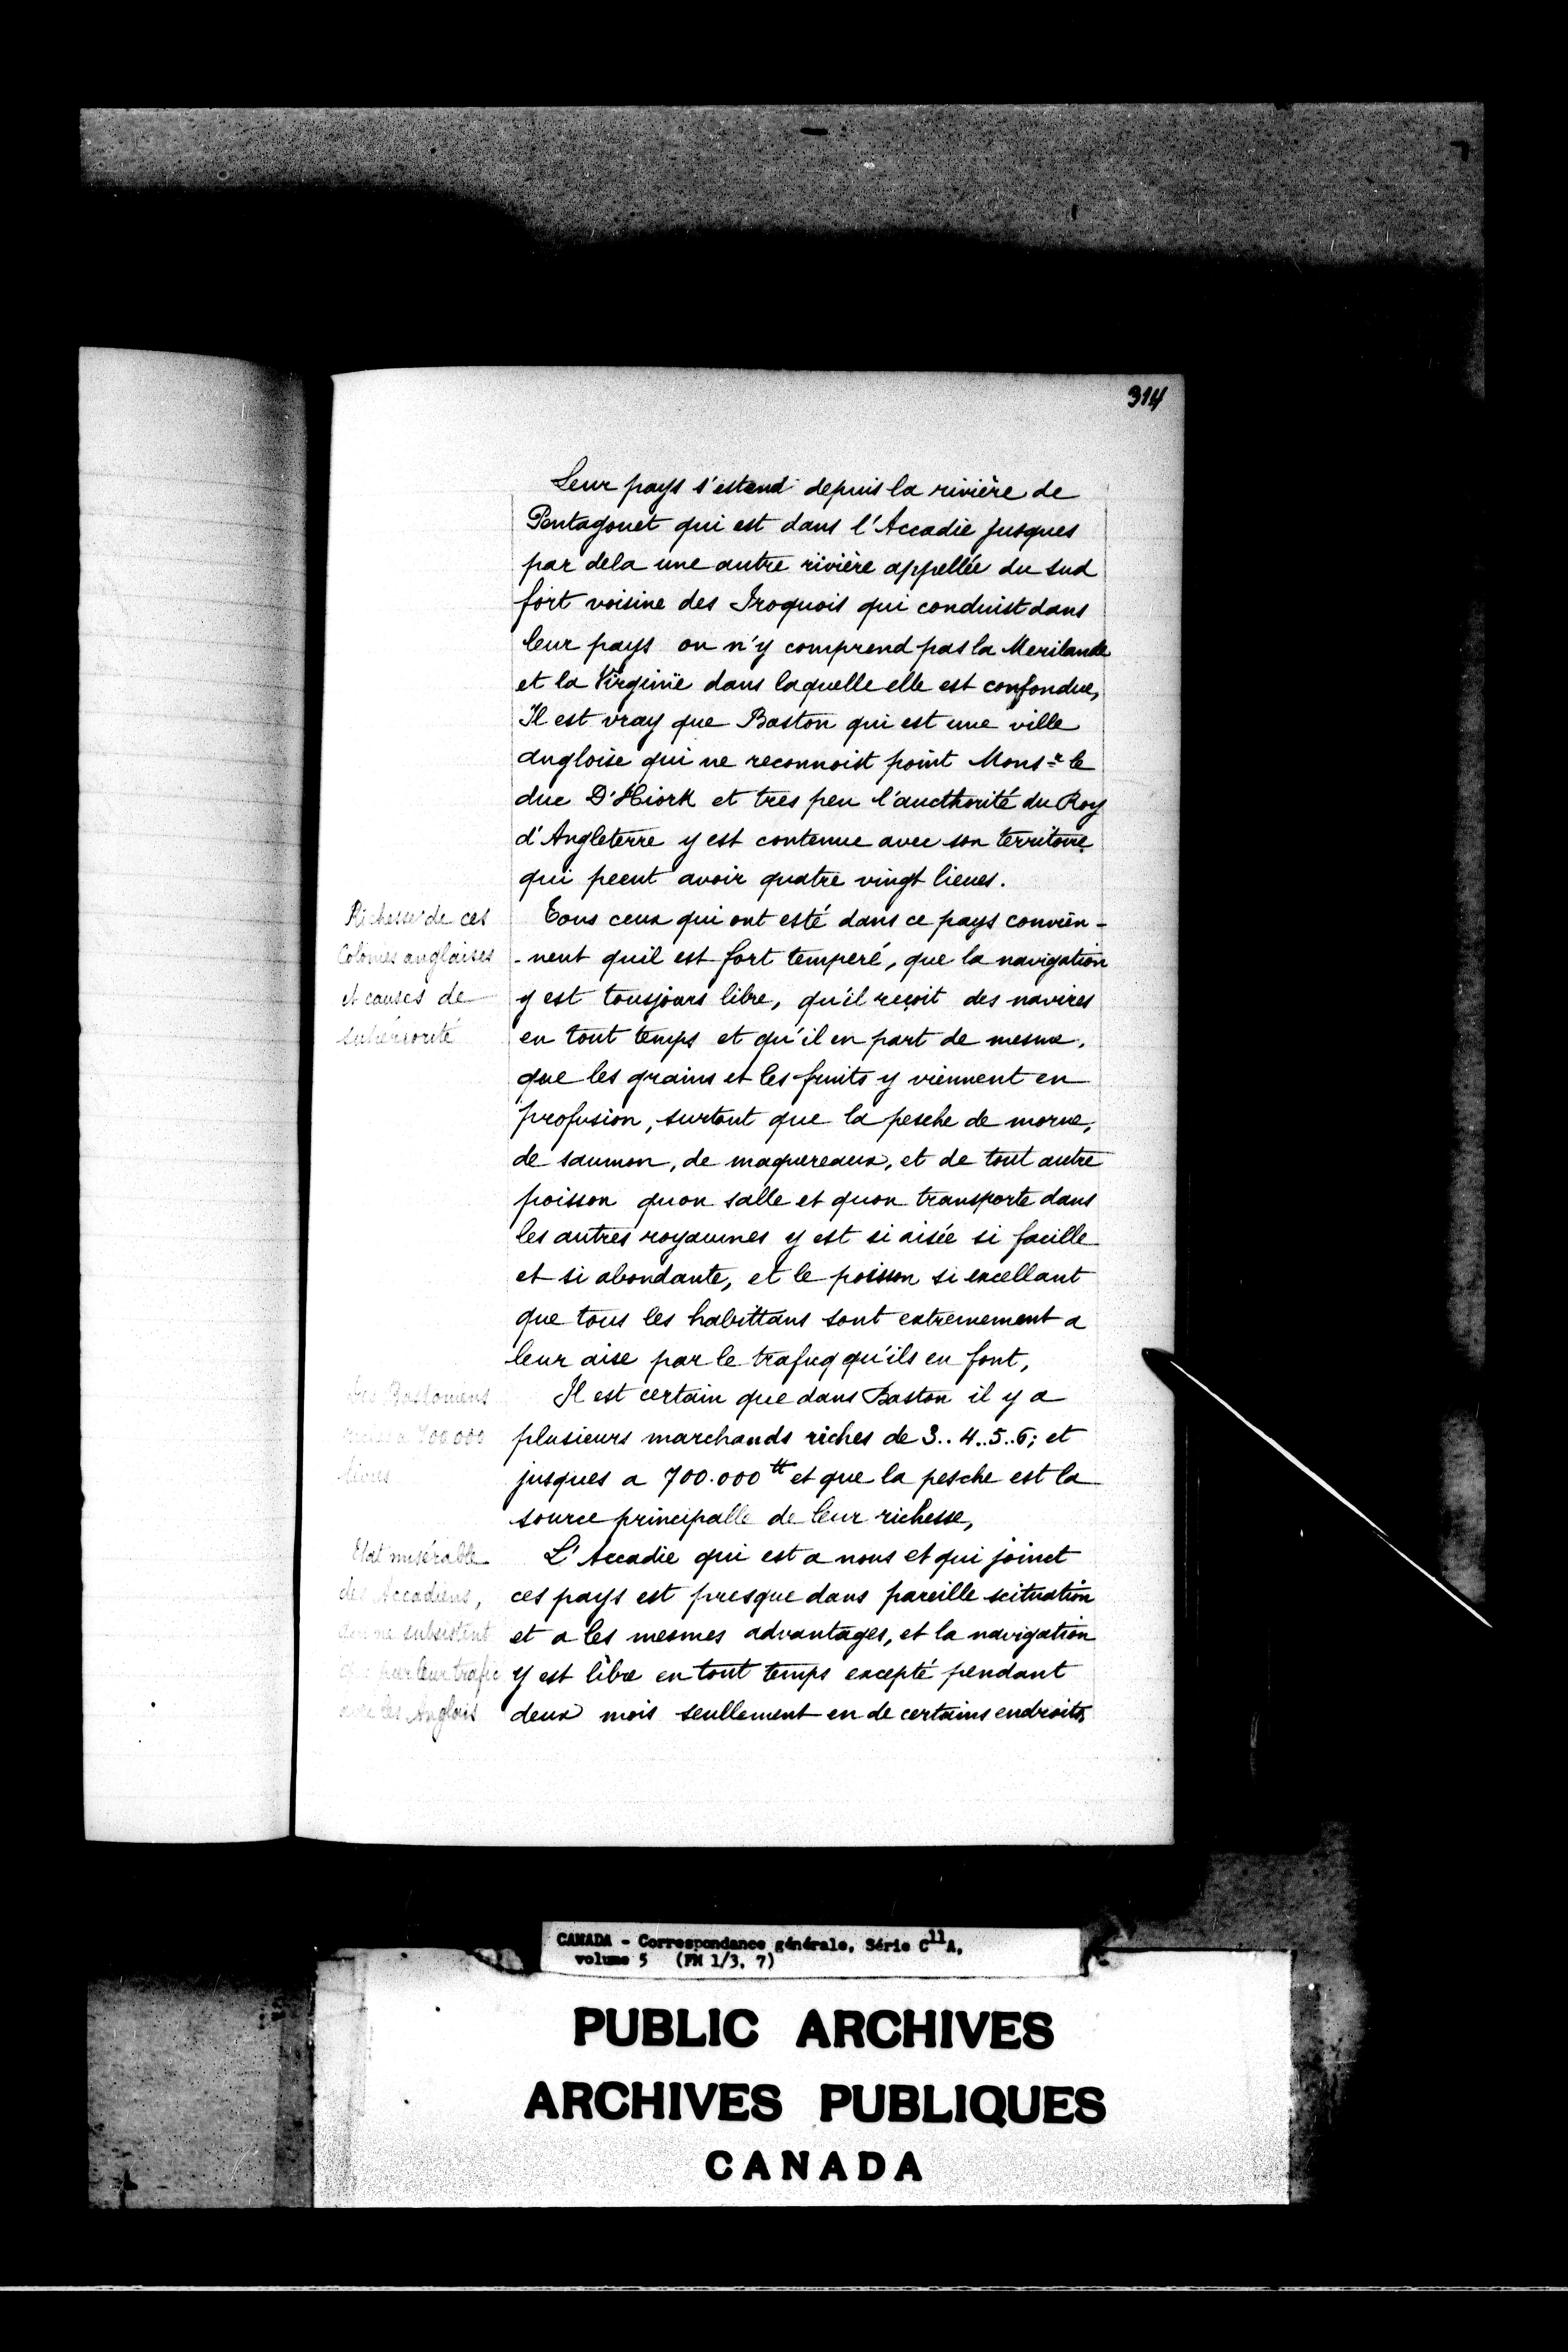 314
Leur pays s'estend depuis la rivière de
Pentagouet qui est dans l'Accadie jusques
par dela une autre rivière appellée du sud
fort voisine des Iroquois qui conduist dans
leur pays on n'y comprend pas la Merilande
et la Virginie dans laquelle elle est confondue,
Il est vray que Baston qui est une ville
angloise qui ne reconnoist point Monsr le
duc D'Hiork et tres peu l'aucthorité du Roy
d'Angleterre y est contenue avec son territoire
qui peeut avoir quatre vingt lieues.
Richesse de ces
Colonies anglaises
et causes de
supériorité
Tous ceux qui ont esté dans ce pays convien-
-nent quil est fort temperé, que la navigation
y est tousjours libre, qu'il reçoit des navires
en tout temps et qu'il en part de mesme,
que les grains et les fruits y viennent en
profusion, surtout que la pesche de morue,
de saumon, de maquereaux, et de tout autre
poisson quon salle et quon transporte dans
les autres royaumes y est si aisée si facille
et si abondante, et le poisson si excellant
que tous les habittans sont extremement a
leur aise par le traficq qu'ils en font,
Bastonnens
700.000
livres
Il est certain que dans Baston il y a
plusieurs marchands riches de 3..4..5..6; et
jusques a 700.000 tt et que la pesche est la
source principalle de leur richesse,
Etat misérable
des Accadiens,
qui ne subsistent
que par leur trafic
avec les Anglais
L'Accadie qui est a nous et qui joinct
ces pays est presque dans pareille scituation
et a les mesmes advantages, et la navigation
y est libre en tout temps excepté pendant
deux mois seullement en de certains endroits,
CANADA - Correspondance générale, Série C11A,
volume 5 (FM 1/3, 7)
PUBLIC ARCHIVES
ARCHIVES PUBLIQUES
CANADA